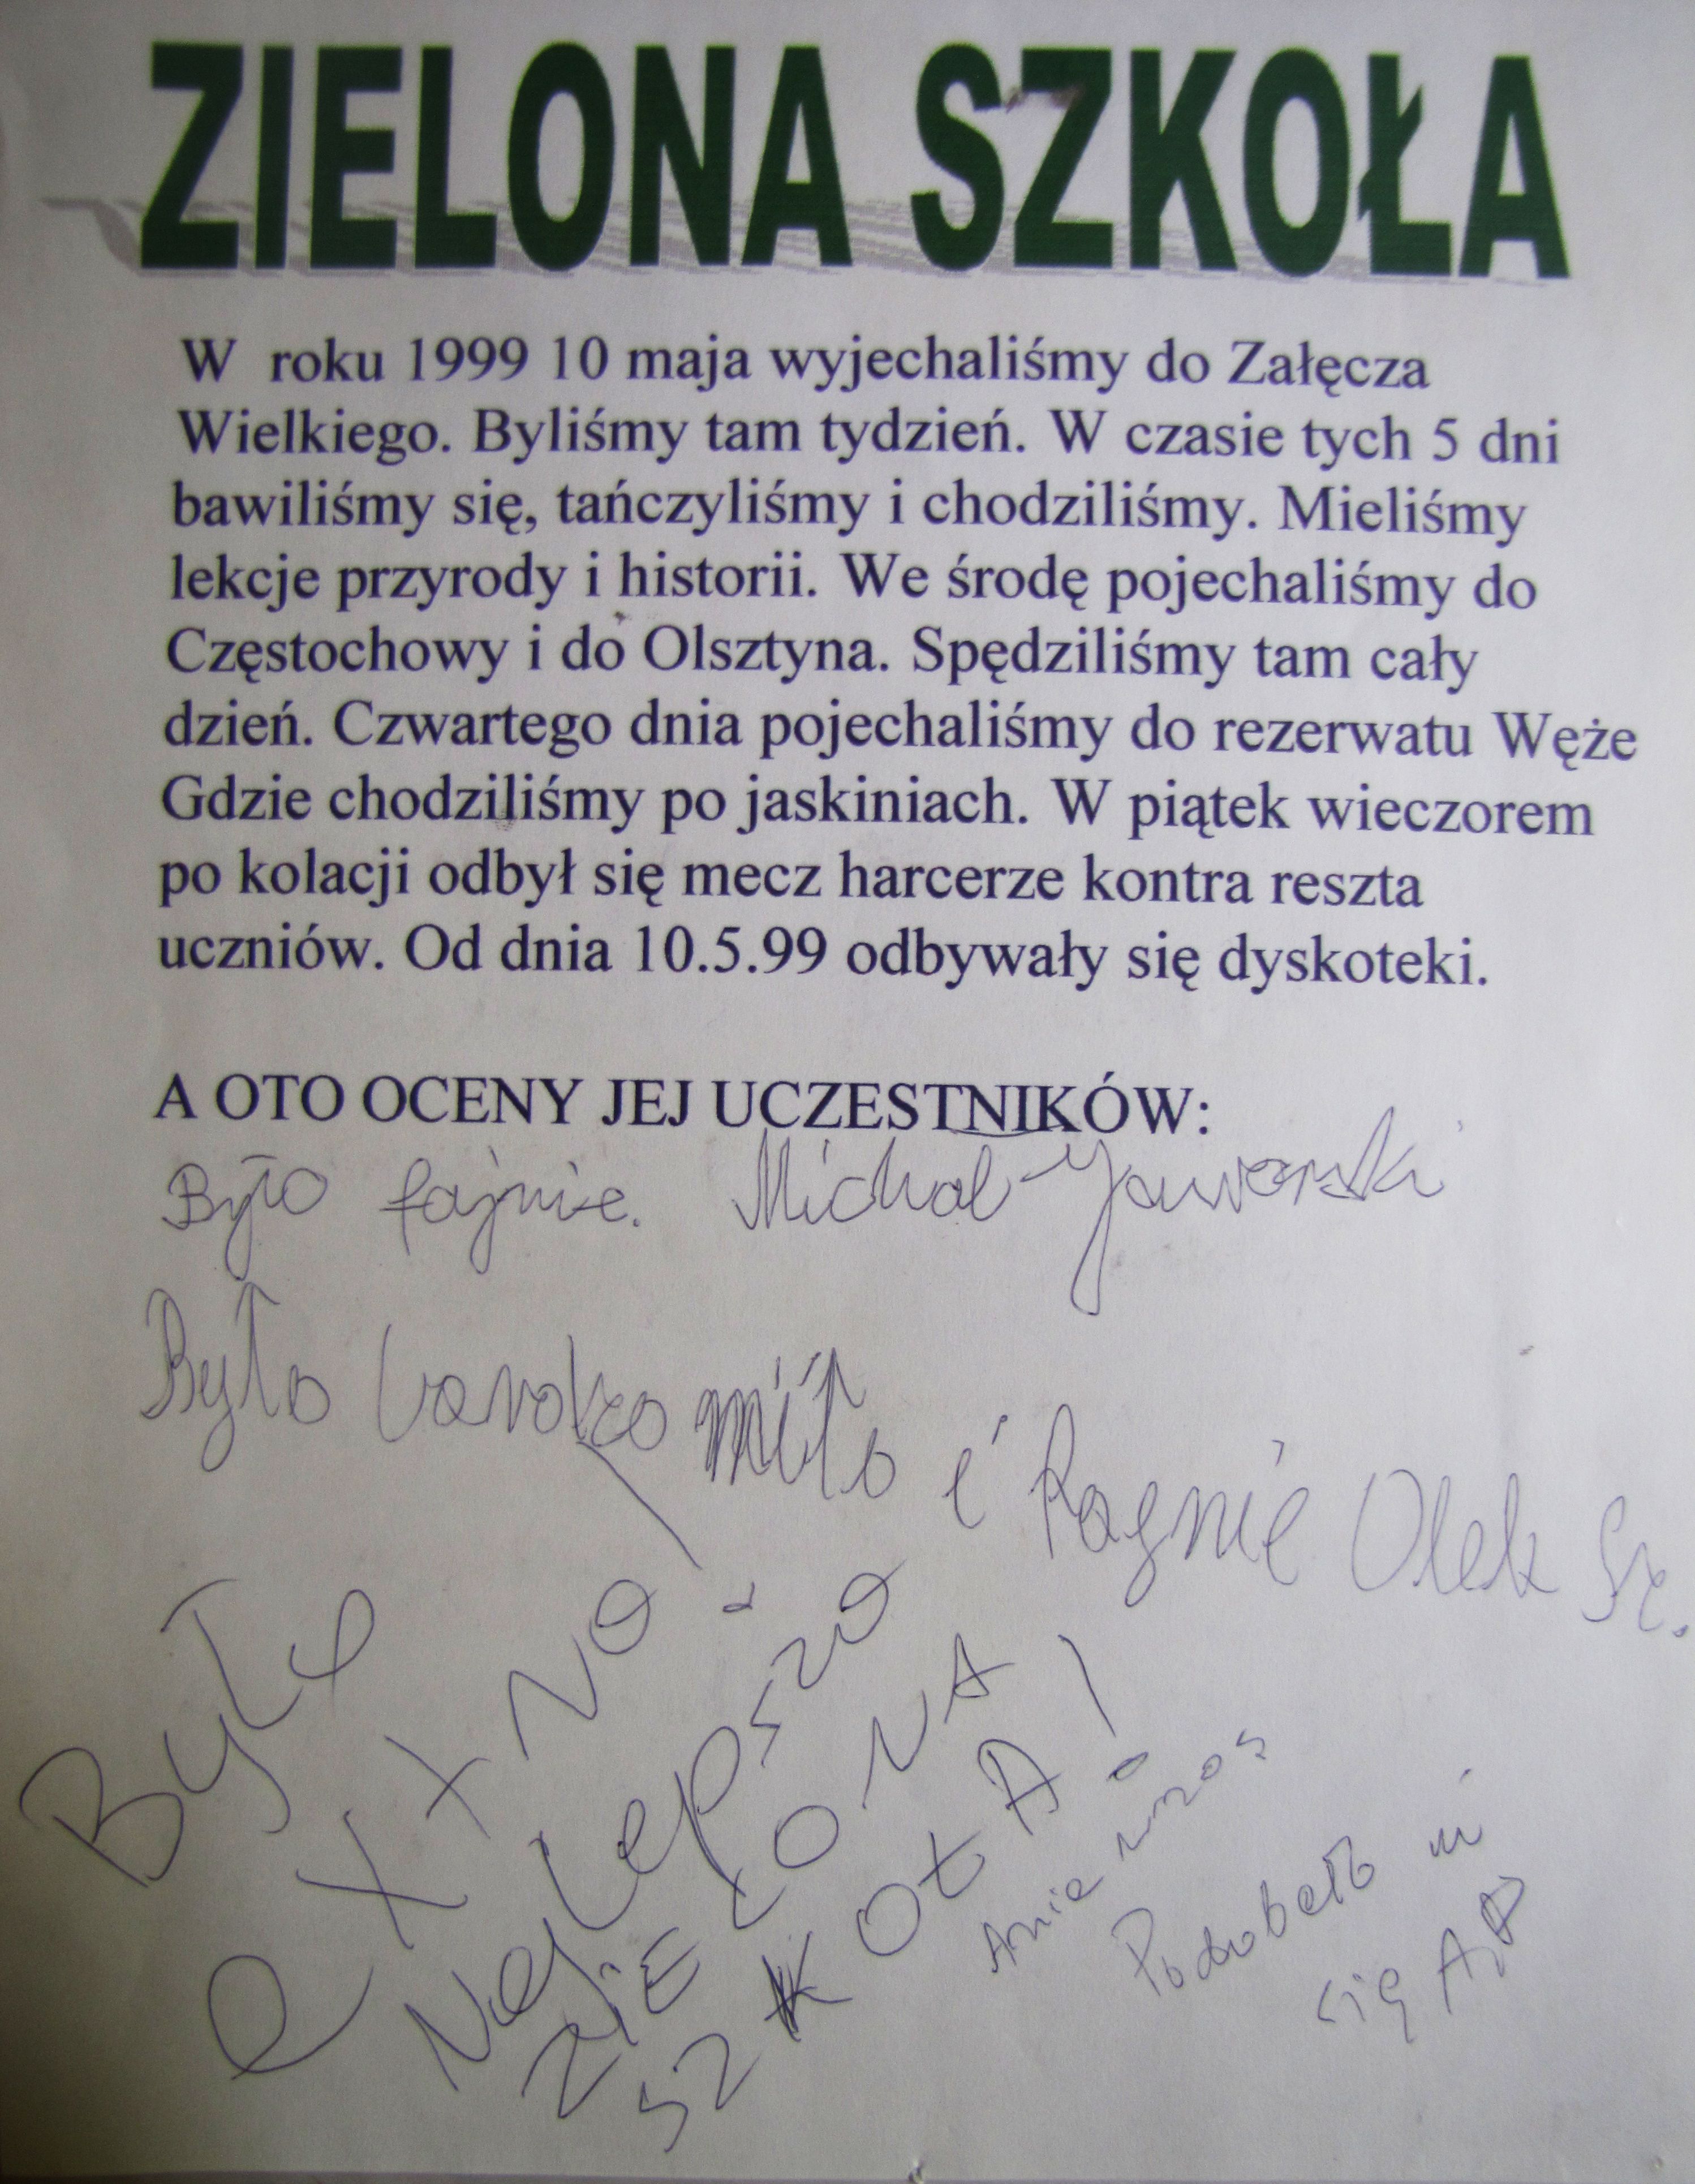 ZIELONA SZKOŁA
W roku 1999 10 maja wyjechaliśmy do Załęcza
Wielkiego. Byliśmy tam tydzień. W czasie tych 5 dni
bawiliśmy się, tańczyliśmy i chodziliśmy. Mieliśmy
lekcje przyrody i historii. We środę pojechaliśmy do
Częstochowy i do Olsztyna. Spędziliśmy tam cały
dzień. Czwartego dnia pojechaliśmy do rezerwatu Węże
Gdzie chodziliśmy po jaskiniach. W piątek wieczorem
po kolacji odbył się mecz harcerze kontra reszta
uczniów. Od dnia 10.5.99 odbywały się dyskoteki.
A OTO OCENY JEJ UCZESTNIKÓW:
Było fajnie. Michał Jaworski
Było bardzo miło i fagnie Olek Sz.
Było
exxtra!
Najlepsza
ZIELONA
SZKOŁA!
Ania
Podobało mi
się